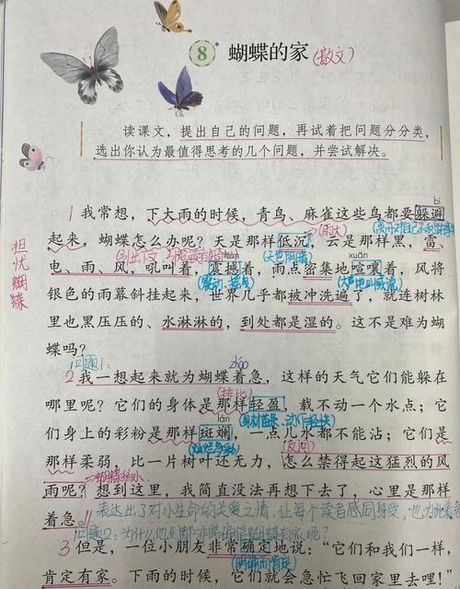 8 蝴蝶的家(散文)
读课文，提出自己的问题，再试着把问题分分类，
选出你认为最值得思考的几个问题，并尝试解决。
bì
1 我常想，下大雨的时候，青鸟、麻雀这些鸟都要躲避
起来，蝴蝶怎么办呢？天是那样低沉，云是那样黑，雷、
xuān
电、雨、风，吼叫着，震撼着，雨点密集地喧嚷着，风将
银色的雨幕斜挂起来，世界几乎都被冲洗遍了，就连树林
里也黑压压的、水淋淋的，到处都是湿的。这不是难为蝴
蝶吗？
担忧蝴蝶
问题1:
2 我一想起来就为蝴蝶着急，这样的天气它们能躲在
哪里呢？它们的身体是那样轻盈，载不动一个水点；它
lán
们身上的彩粉是那样斑斓，一点儿水都不能沾；它们是
那样柔弱，比一片树叶还无力，怎么禁得起这猛烈的风
雨呢？想到这里，我简直没法再想下去了，心里是那样
着急。
表达出了对小生命的关爱之情，让每个读者感同身受，也为此着急
问题2:为什么他们都非常确信蝴蝶有家呢？
3 但是，一位小朋友非常确定地说：“它们和我们一样，
肯定有家。下雨的时候，它们就会急忙飞回家里去哩！”